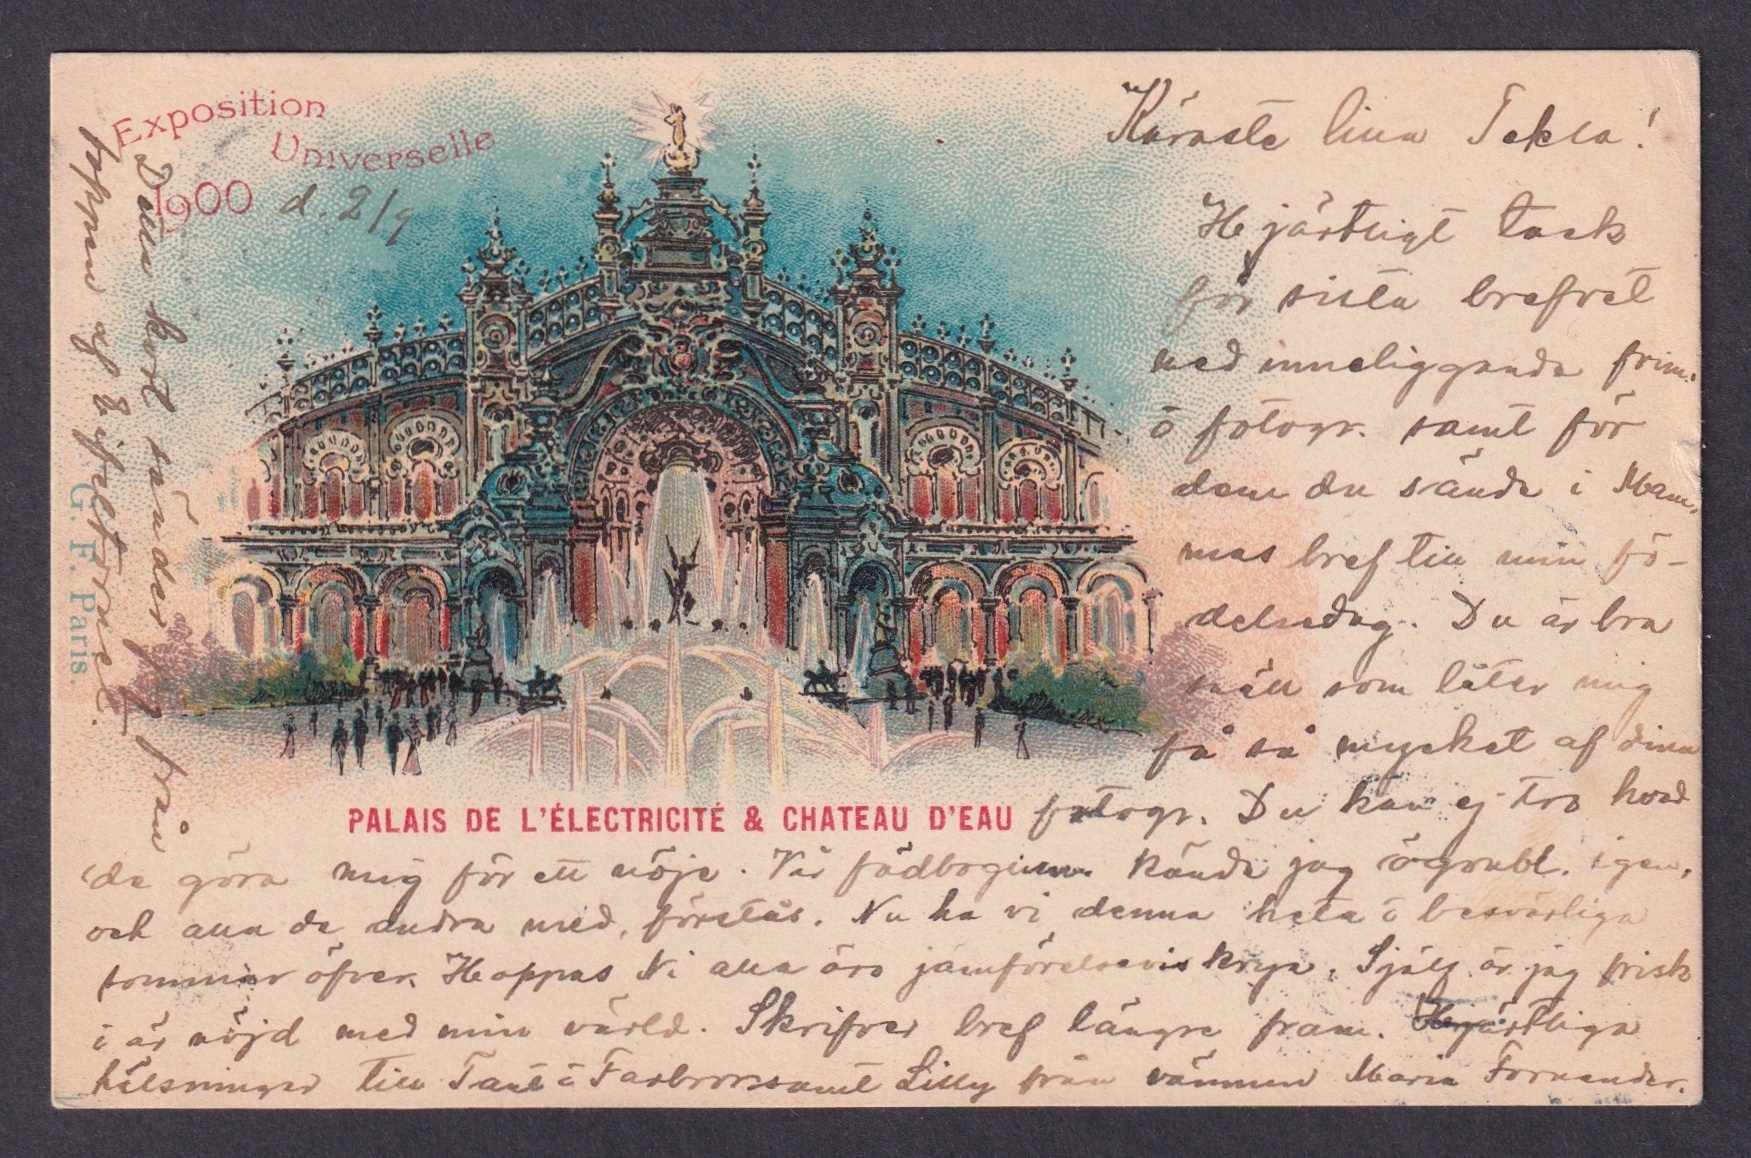 Exposition
Universelle
1900 d. 2/9
Detta kort sänder jag från
toppen af Eifeltornet.
G. F. Paris.
PALAIS DE L'ÉLECTRICITÉ & CHATEAU D'EAU
Käraste lilla Tekla!
Hjärtligt tack
för sista brefvet
med inneliggande frim.
o fotogr. samt för
dem du sände i Mam,
mas bref till min fö-
delsedag. Du är bra
snäll som låter mig
få så mycket af dina
fotogr. Du kan ej tro hvad
de göra mig för ett nöje. Vår kände jag ögonbl. igen,
och alla de andra med, förstås. Nu ha vi denna heta o besvärliga
sommar öfver. Hoppas Ni alla äro jämförelsevis krya. Själf är jag frisk
o är nöjd med min värld. Skrifver bref längre fram. Hjärtliga
hälsningar till Tant o Farbror samt Lilly från vännen Maria Fornander.